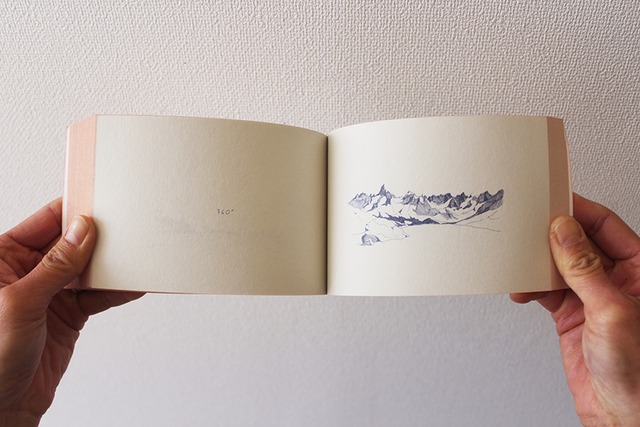 360°